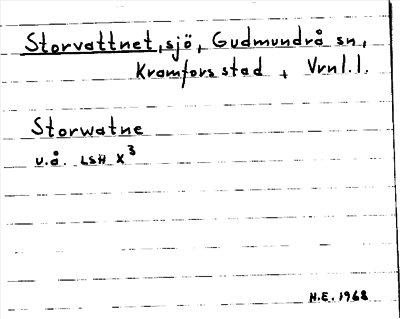 Storvattnet, sjö, Gudmundrå sn,
Kramfors stad, Vrnl.l.
Storwatne
u.å. LSH X³
H.E. 1968